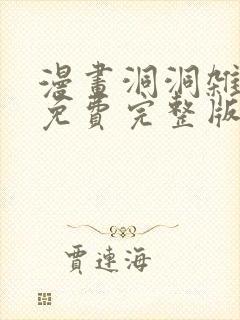 漫畫洞洞雜
免費完整版
賈連海